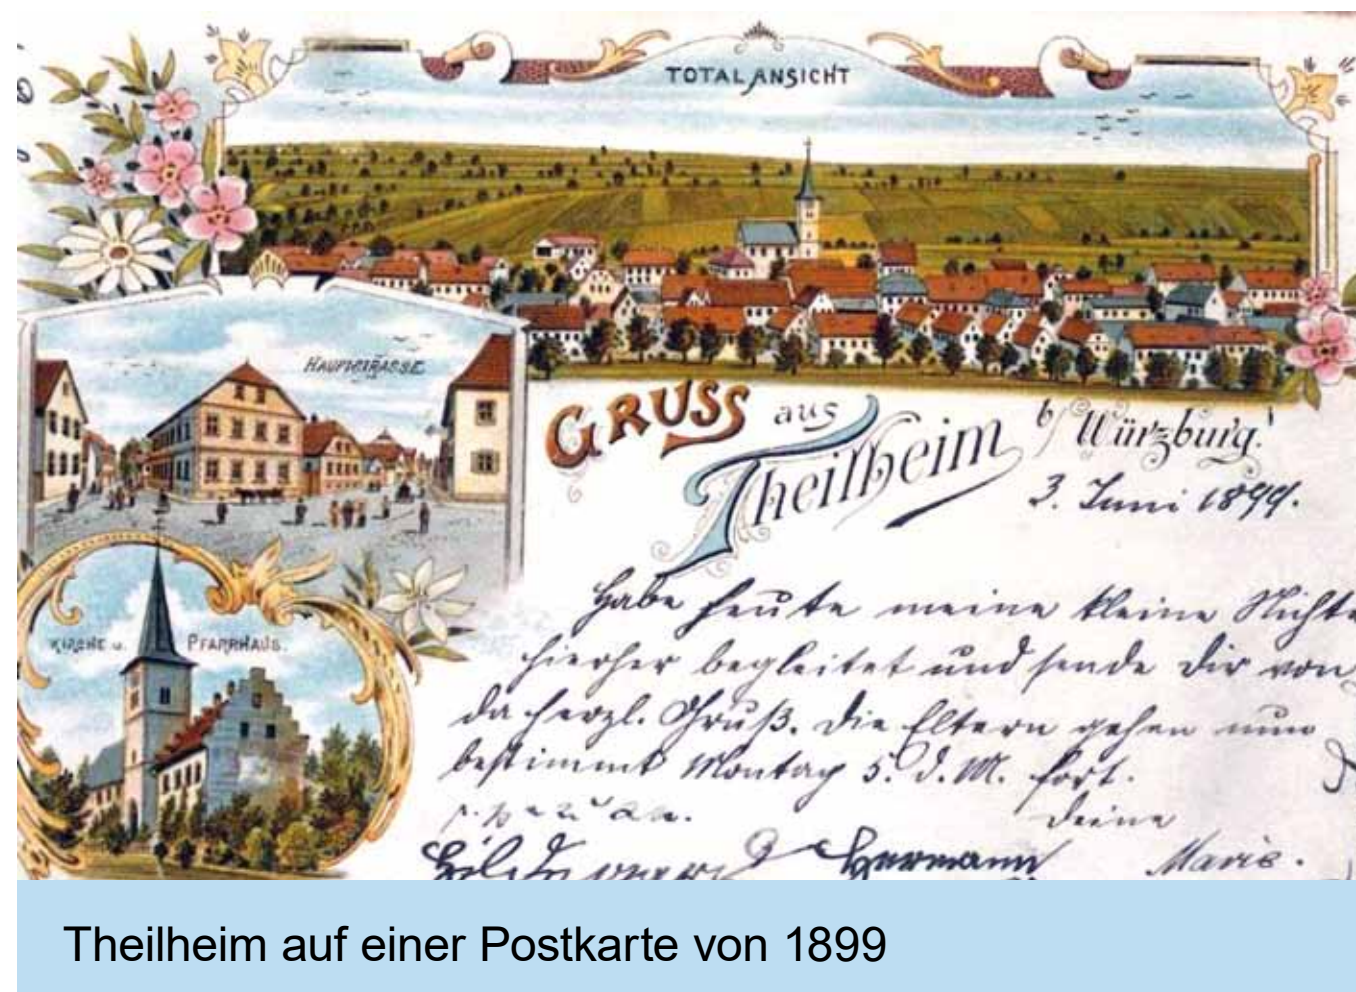 TOTALANSICHT
HAUPTSTRASSE
GRUSS aus
Theilheim b/ Würzburg.
3. Juni 1899.
KIRCHE u. PFARRHAUS.
Habe heute meine kleine Nichte
hierher begleitet und sende Dir von
da herzl. Gruß. Die Eltern gehen nun
bestimmt Montag 5. d. M. fort.
Deine
Hermann Marie.
Theilheim auf einer Postkarte von 1899